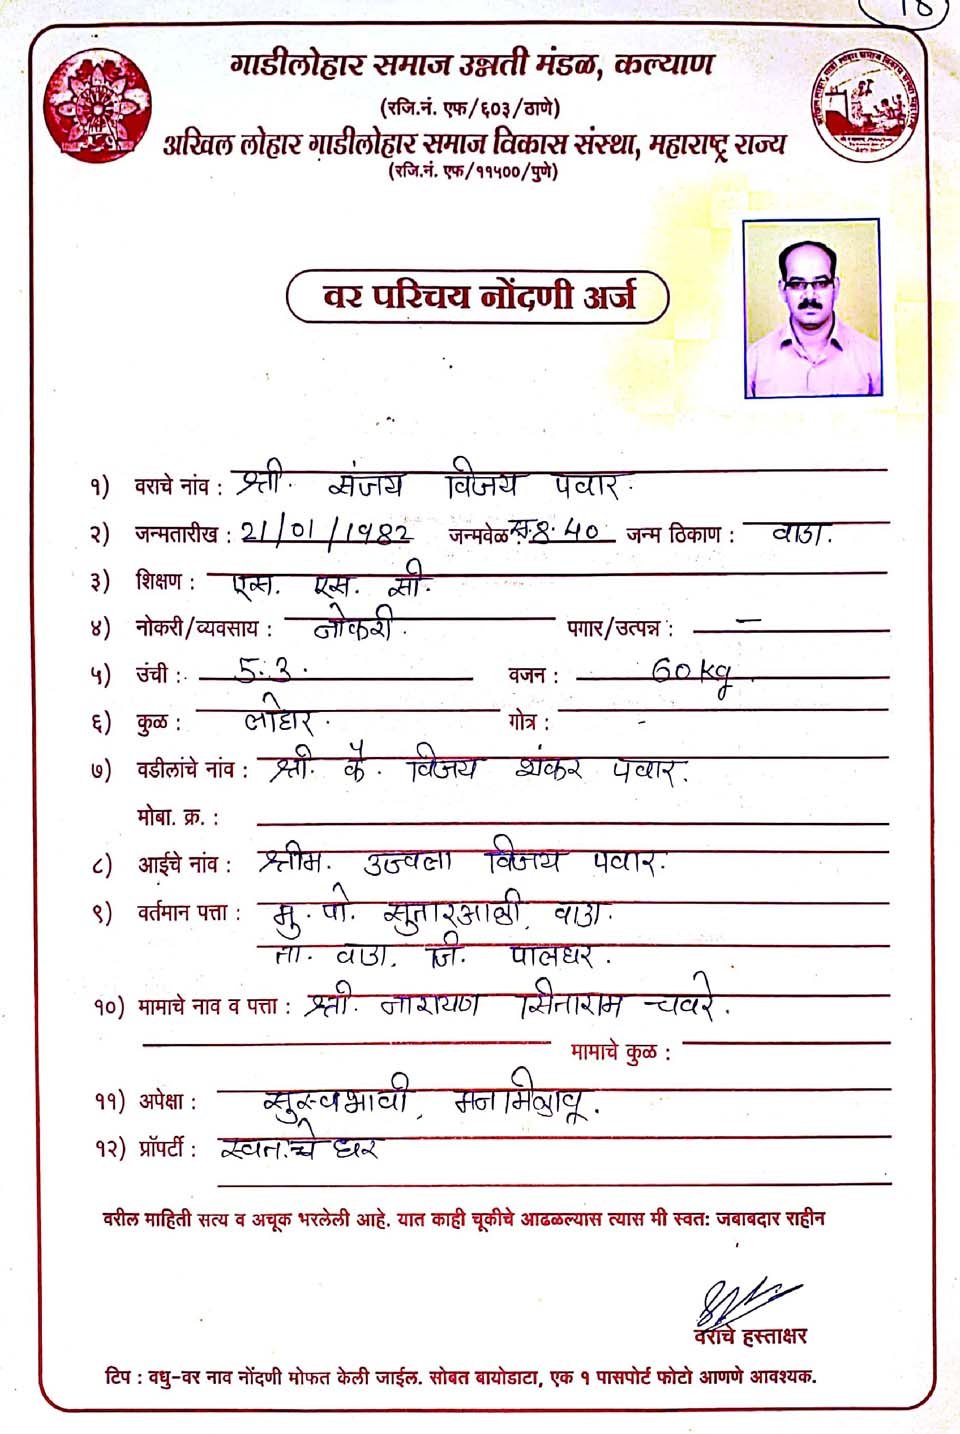 18
गाडीलोहार समाज उन्नती मंडळ, कल्याण
(रजि.नं. एफ/६०३/ठाणे)
अखिल लोहार गाडीलोहार समाज विकास संस्था, महाराष्ट्र राज्य
(रजि.नं. एफ/११५००/पुणे)
वर परिचय नोंदणी अर्ज
१) वराचे नांव : श्री. संजय विजय पवार.
२) जन्मतारीख : 21/01/1982 जन्मवेळ : स. 8.40 जन्म ठिकाण : वाडा.
३) शिक्षण : एस. एस. सी.
४) नोकरी/व्यवसाय : नोकरी. पगार/उत्पन्न : –
५) उंची : 5.3. वजन : 60 kg
६) कुळ : लोहार. गोत्र : -
७) वडीलांचे नांव : श्री. कै. विजय शंकर पवार.
मोबा. क्र. :
८) आईचे नांव : श्रीम. उज्वला विजय पवार.
९) वर्तमान पत्ता : मु. पो. सुतारआळी, वाडा.
ता. वाडा, जि. पालघर.
१०) मामाचे नाव व पत्ता : श्री. नारायण सिताराम चवरे.
मामाचे कुळ :
११) अपेक्षा : सुस्वभावी, मनमिळावू.
१२) प्रॉपर्टी : स्वतःचे घर
वरील माहिती सत्य व अचूक भरलेली आहे. यात काही चूकीचे आढळल्यास त्यास मी स्वत: जबाबदार राहीन
वराचे हस्ताक्षर
टिप : वधु-वर नाव नोंदणी मोफत केली जाईल. सोबत बायोडाटा, एक १ पासपोर्ट फोटो आणणे आवश्यक.